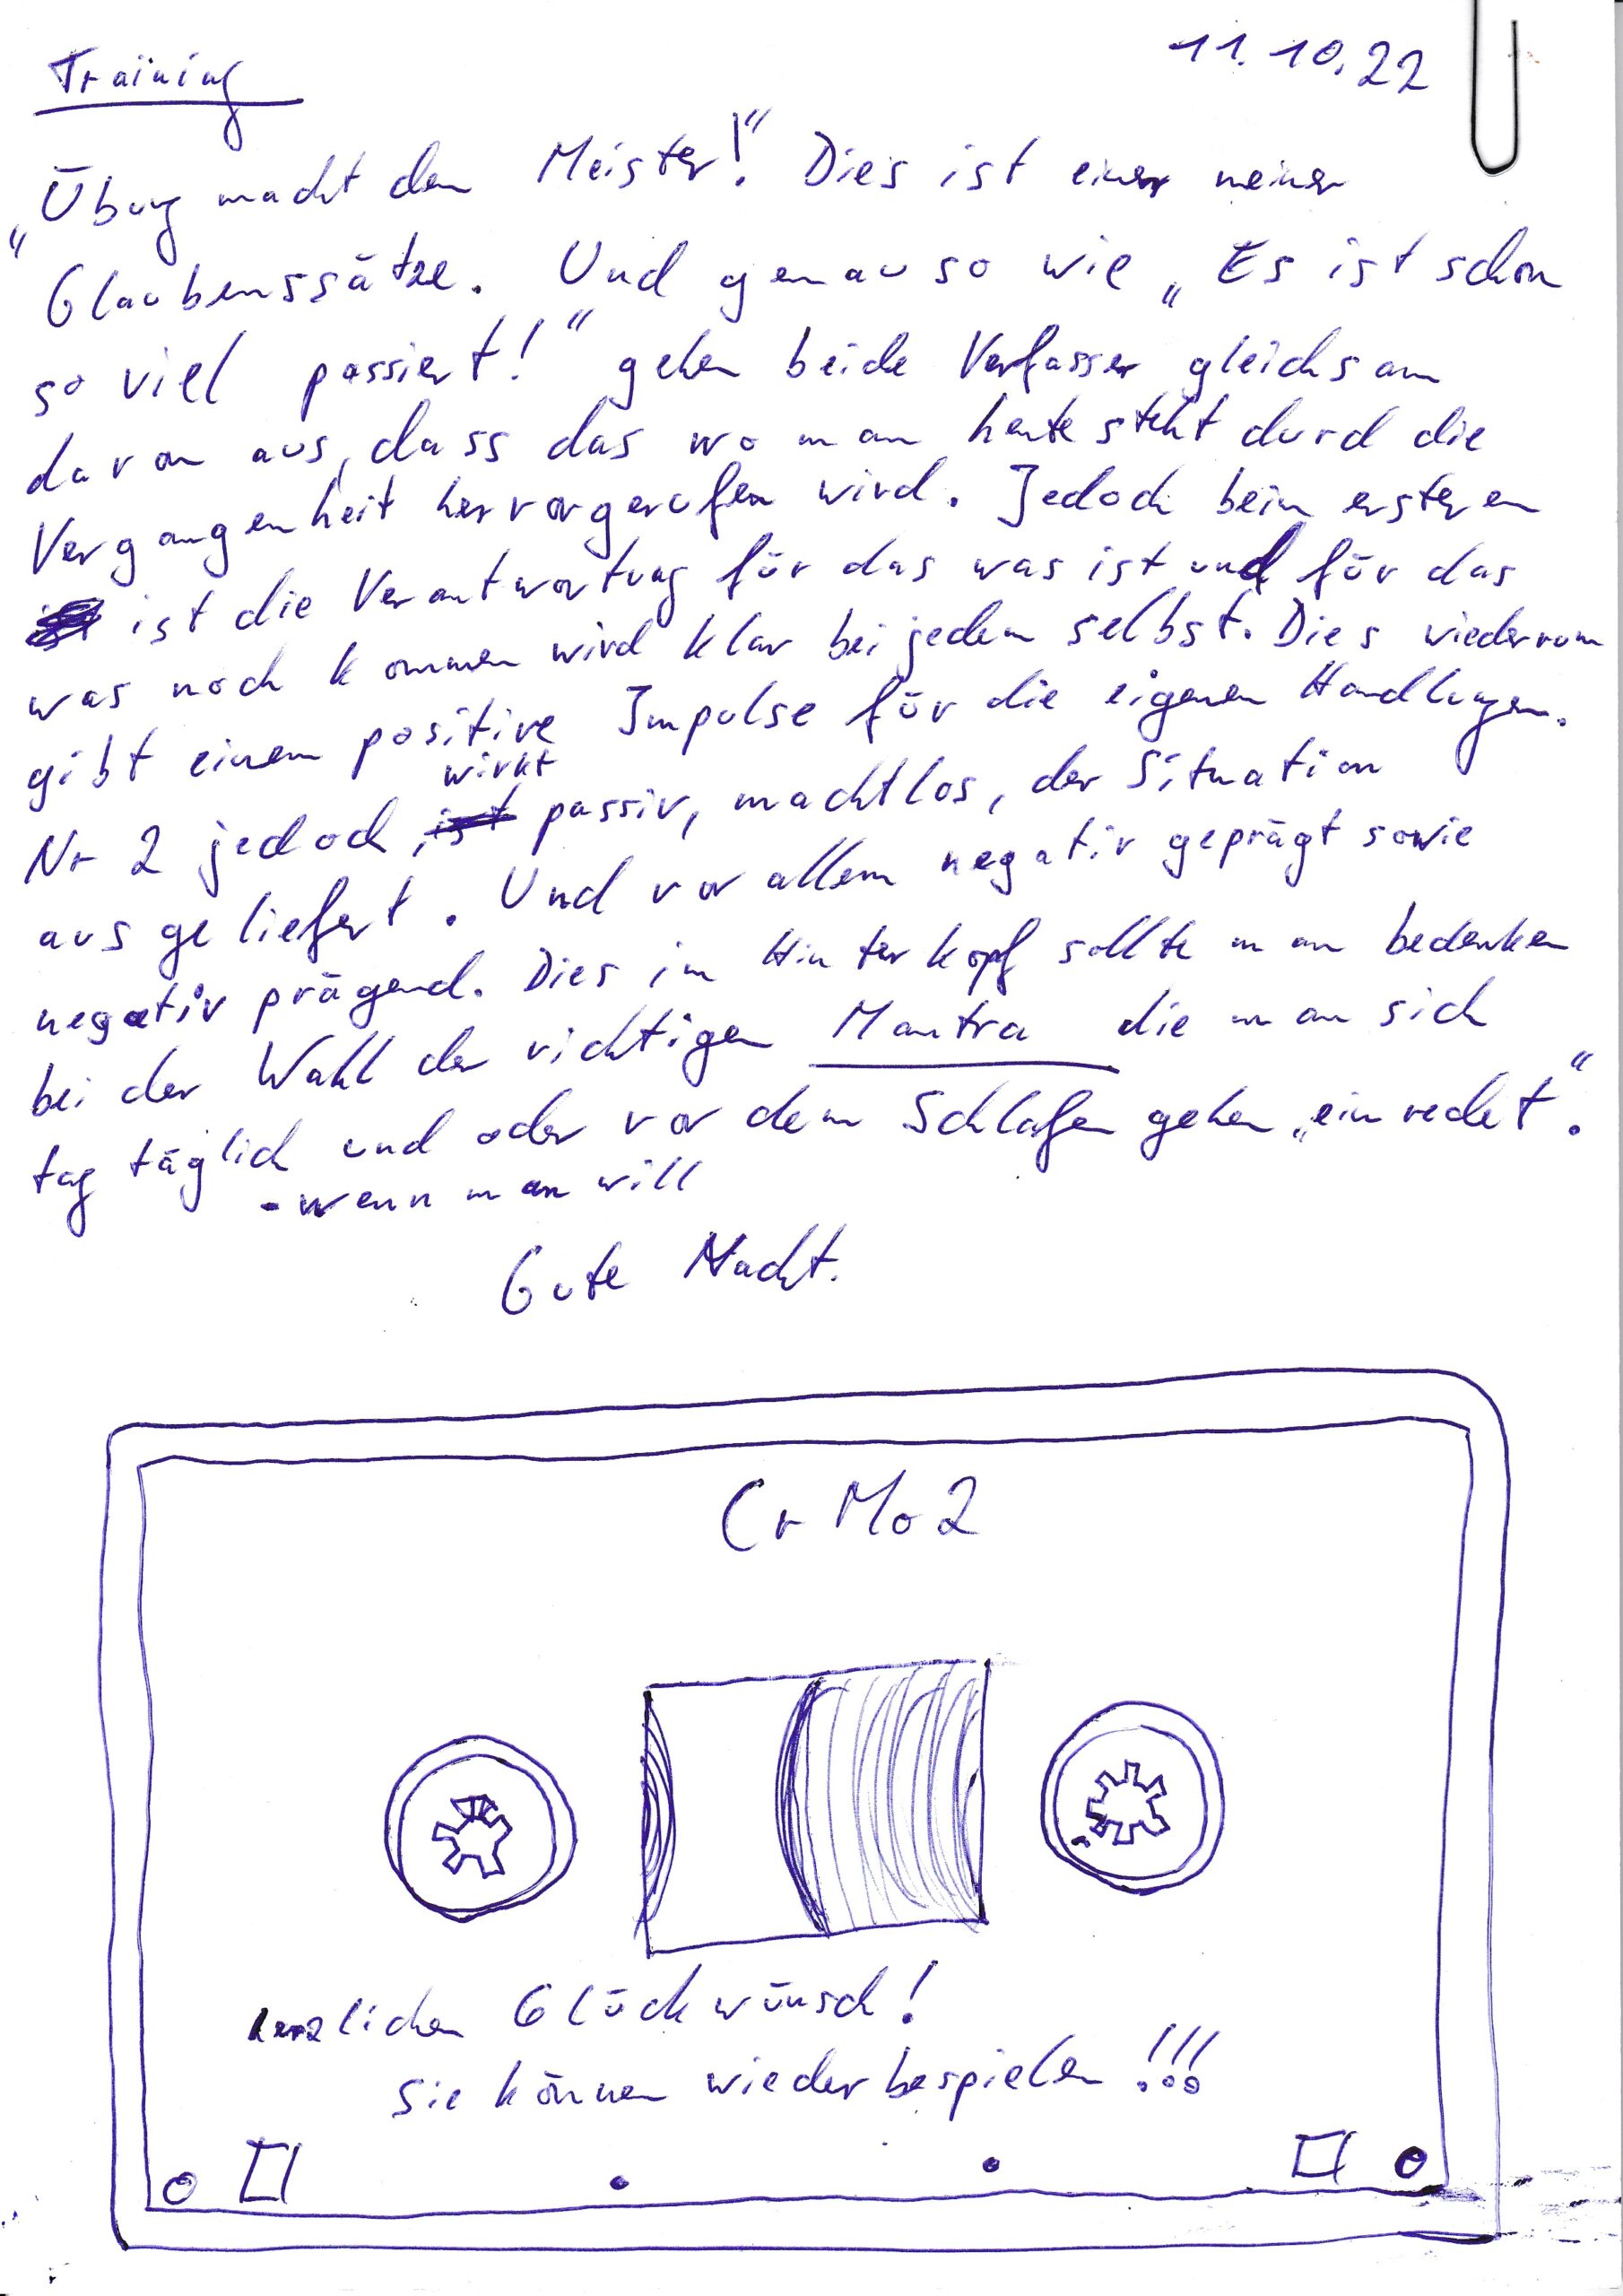 Training
11.10.22
„Übung macht den Meister!“ Dies ist einer meiner
Glaubenssätze. Und genau so wie „Es ist schon
so viel passiert!“ gehen beide Verfasser gleichsam
davon aus, dass das wo man heute steht durch die
Vergangenheit hervorgerufen wird. Jedoch beim ersteren
ist die Verantwortung für das was ist und für das
was noch kommen wird klar bei jedem selbst. Dies wiederrum
gibt einen positive Impulse für die eigenen Handlungen.
wirkt
Nr 2 jedoch, ist passiv, machtlos, der Situation
ausgeliefert. Und vor allem negativ geprägt sowie
negativ prägend. Dies im Hinterkopf sollte man bedenken
bei der Wahl der richtigen Mantra die man sich
tag täglich und oder vor dem Schlafen gehen „ein redet“.
- wenn man will
Gute Nacht.
CrMo2
herzlichen Glückwünsch!
Sie können wieder bespielen!!!